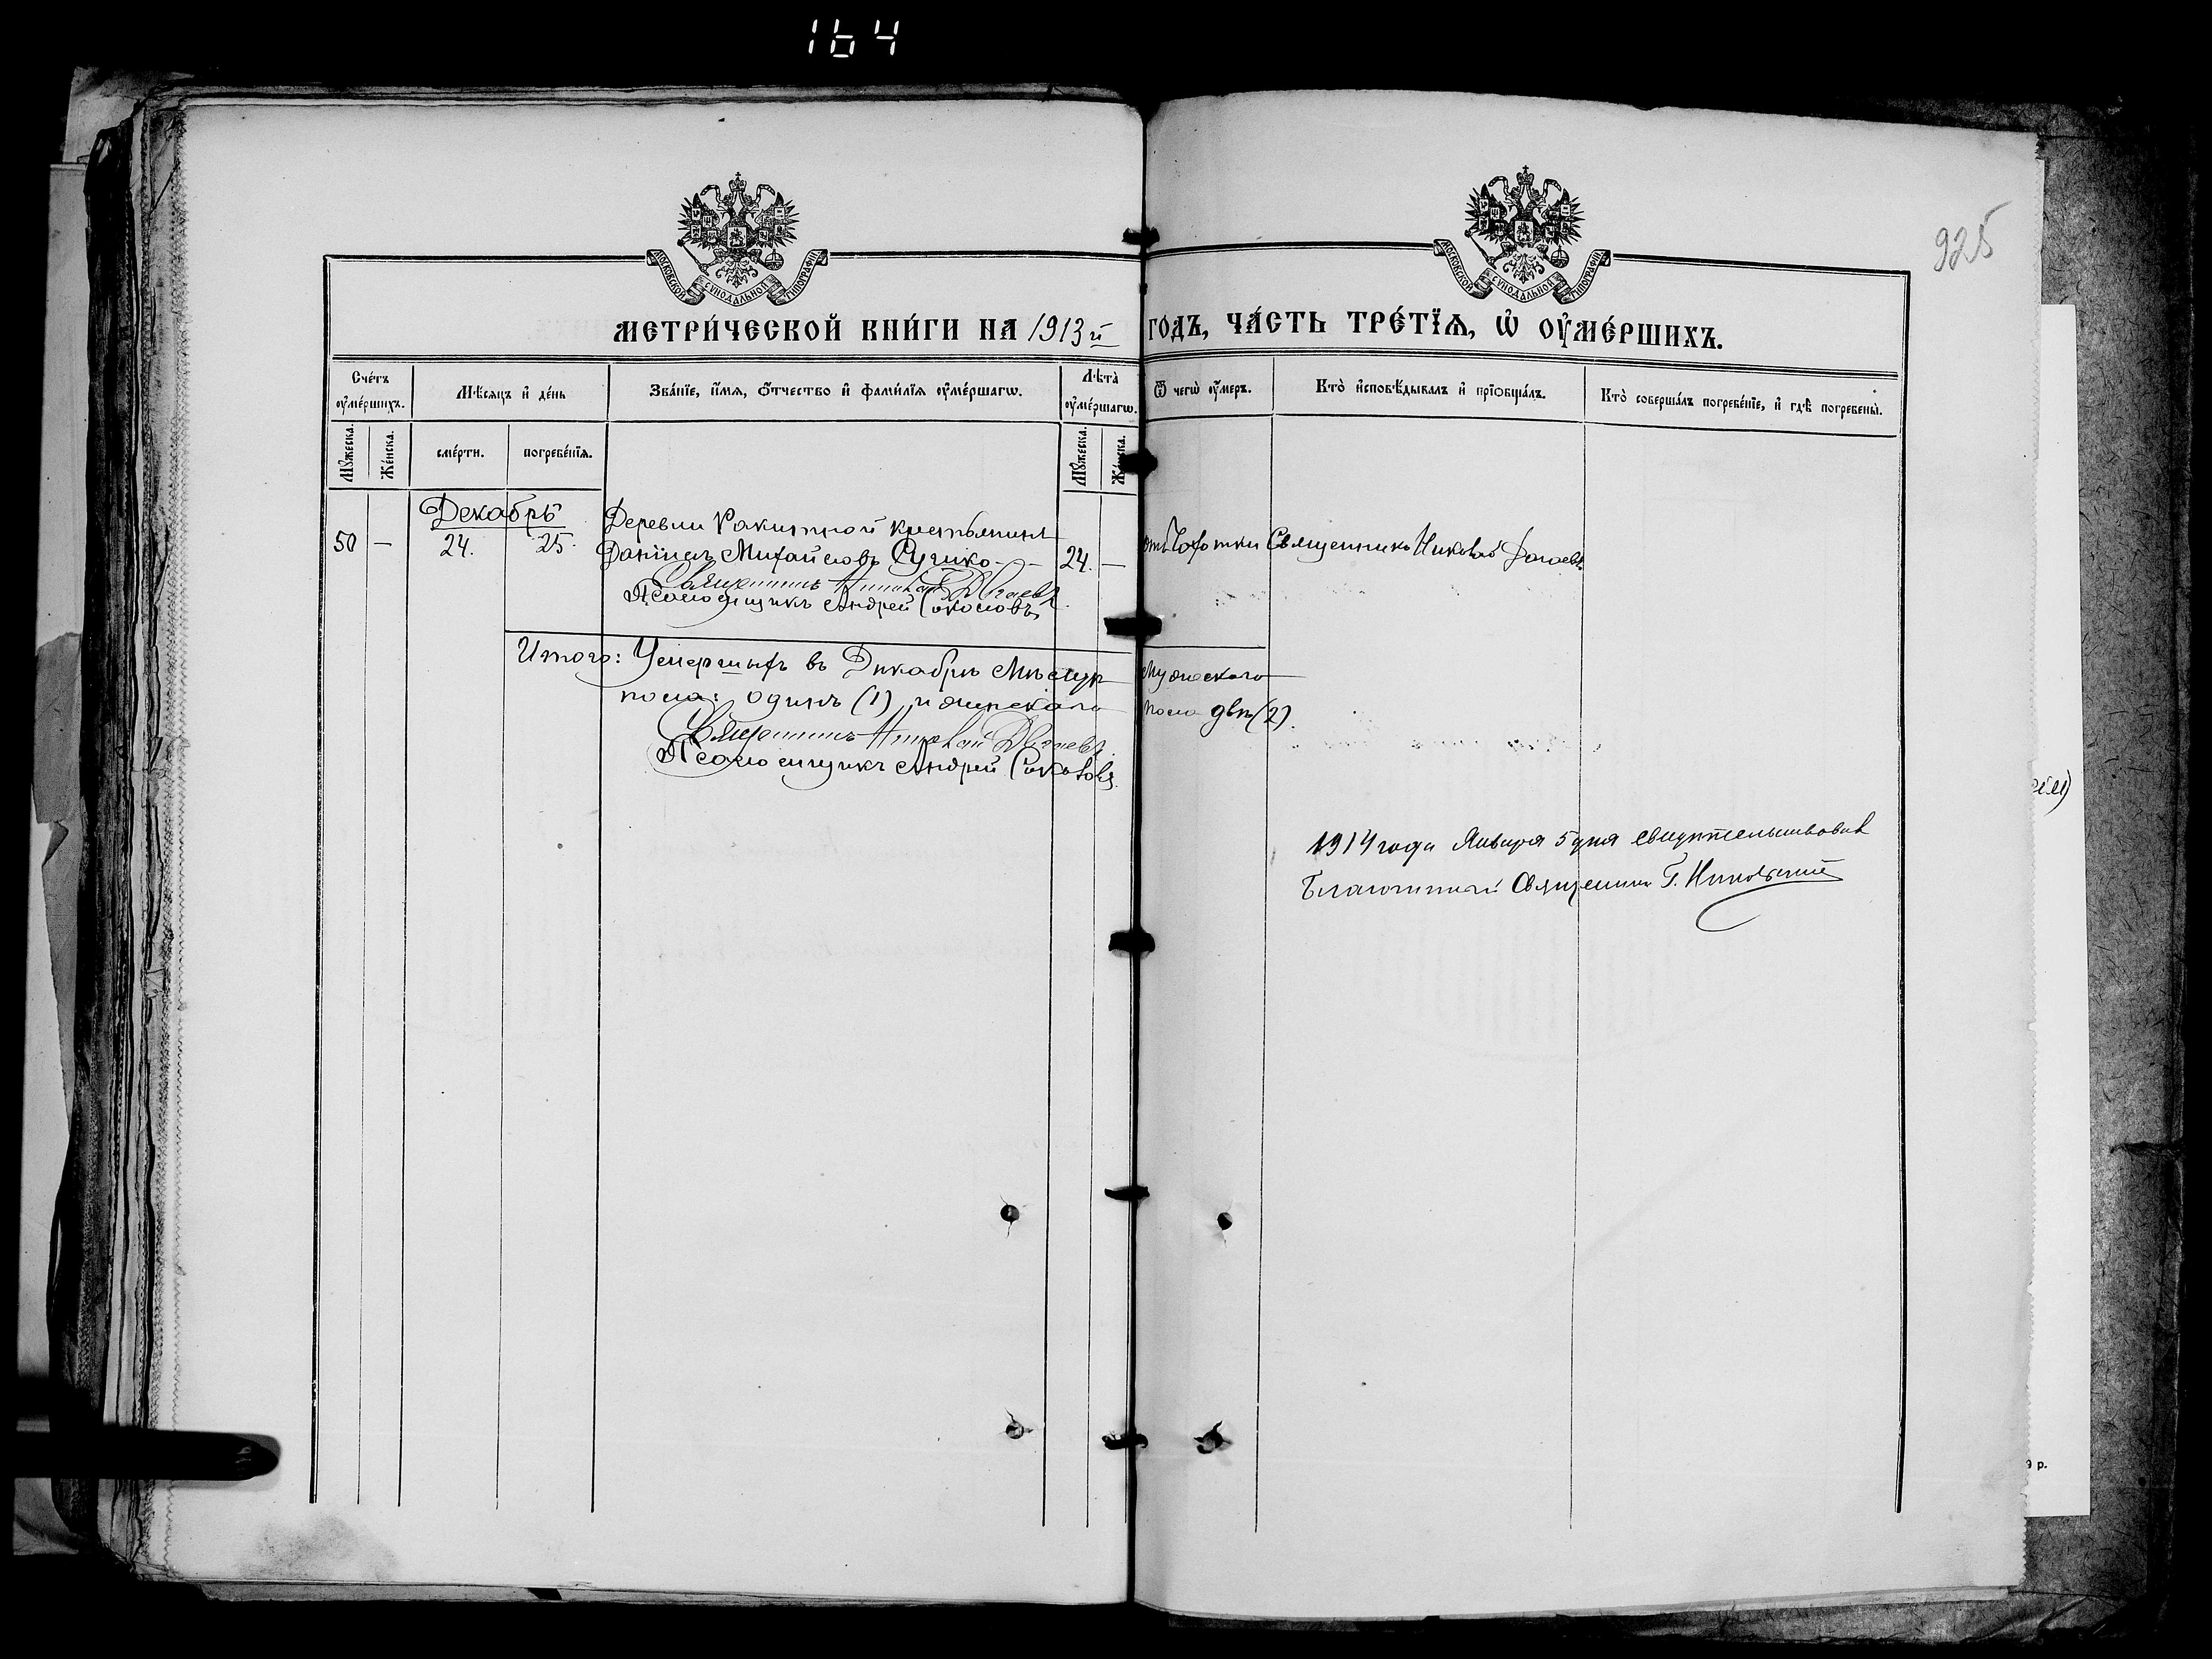 164
925
МОСКОВСКОЙ СУНОДАЛЬНОЙ ТИПОГРАФІИ
МОСКОВСКОЙ СУНОДАЛЬНОЙ ТИПОГРАФІИ
МЕТРИ́ЧЕСКОЙ КНИ́ГИ НА 1913й ГОДЪ, ЧА́СТЬ ТРЕ́ТЇѦ, Ѡ҆ ОУ҆МЕ́РШИХЪ.
Сче́тъ оу҆ме́ршихъ.
Мѣ́сѧцъ и҆ де́нь
Зва́нїе, и҆́мѧ, ѻ҆́тчество и҆ фами́лїѧ оу҆ме́ршагѡ.
Лѣта̀ оу҆ме́ршагѡ.
Ѿ чегѡ̀ оу҆́меръ.
Кто̀ и҆сповѣ́дывалъ и҆ прїѡбща́лъ.
Кто̀ соверша́лъ погребе́нїе, и҆ гдѣ̀ погребены̀.
Мꙋ́жеска.
Же́нска.
сме́рти.
погребе́нїѧ.
Мꙋ́жеска.
Же́нска.
Декабрь
50 — 24. 25. Деревни Ракитной крестьянинъ
Даніилъ Михайловъ Сучико- 24. — отъ Чахотки Священникъ Николай
Священникъ Николай
Псаломщикъ Андрей Соколовъ
Итого: Умершихъ въ Декабрѣ Мѣсяцѣ Мужескаго
пола: одинъ (1) и женскаго пола двѣ (2).
Священникъ Николай
Псаломщикъ Андрей Соколовъ.
1914 года Января 5 дня свидѣтельствовалъ
Благочинный Священникъ Г. Никольскій
9 р.